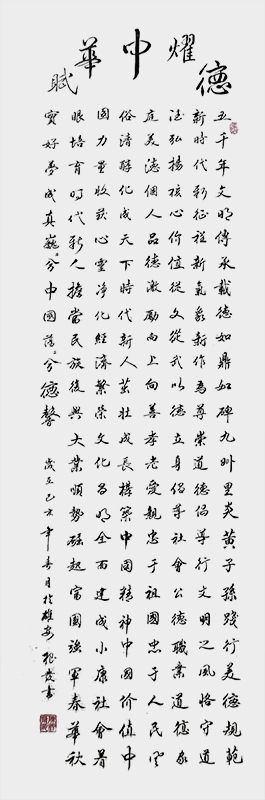 德耀中華賦
五千年文明傳承載德如鼎如碑九州里炎黃子孫踐行美德規範
新時代新征程新氣象新作為尊崇道德倡導行文明之風恪守道
法弘揚核心價值從文從武以德立身倡導社會公德職業道德家
庭美德個人品德激勵向上向善孝老愛親忠于祖國忠于人民
俗清醇化成天下時代新人茁壯成長構築中國精神中國價值中
國力量收获心靈净化經濟繁榮文化昌明全面建成小康社會着
眼培育時代新人擔當民族復興大業順勢崛起富國強軍春華秋
實好夢成真巍巍兮中國蕩蕩兮德馨
歲在己亥年春月於雄安 書